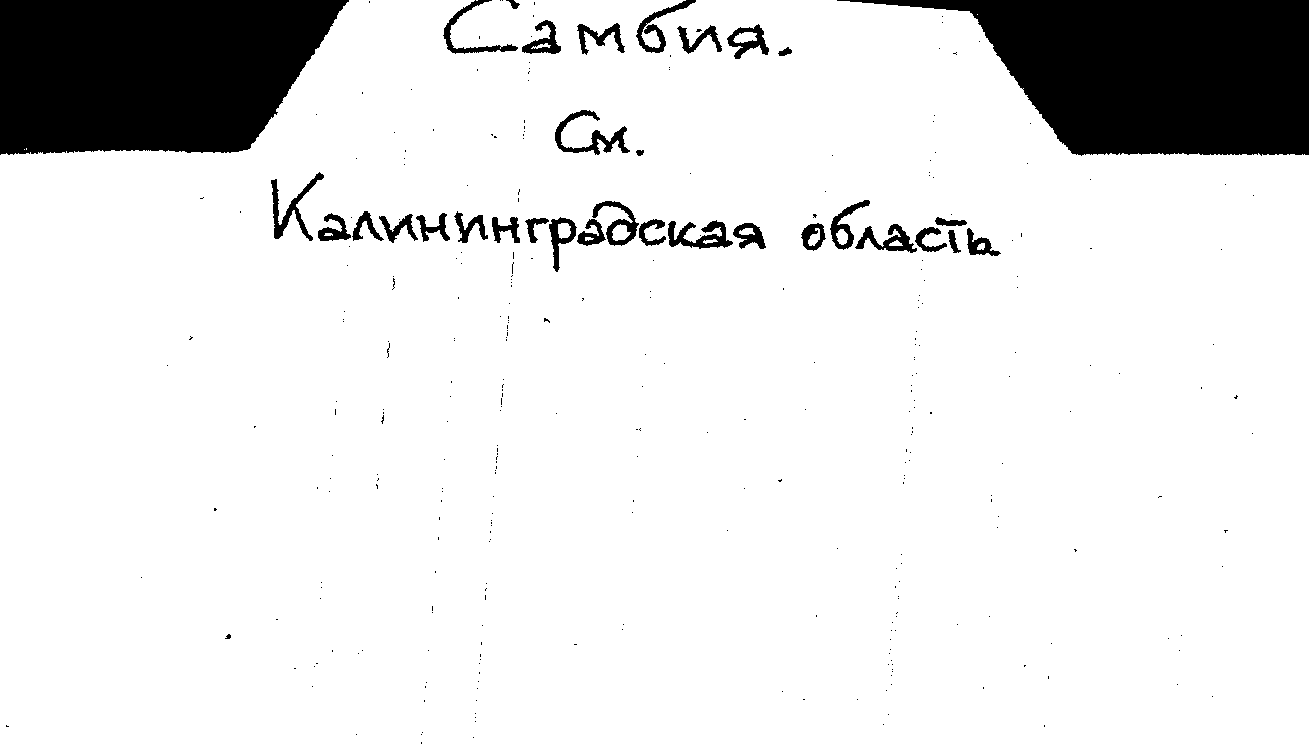 Самбия.
См.
Калининградская область